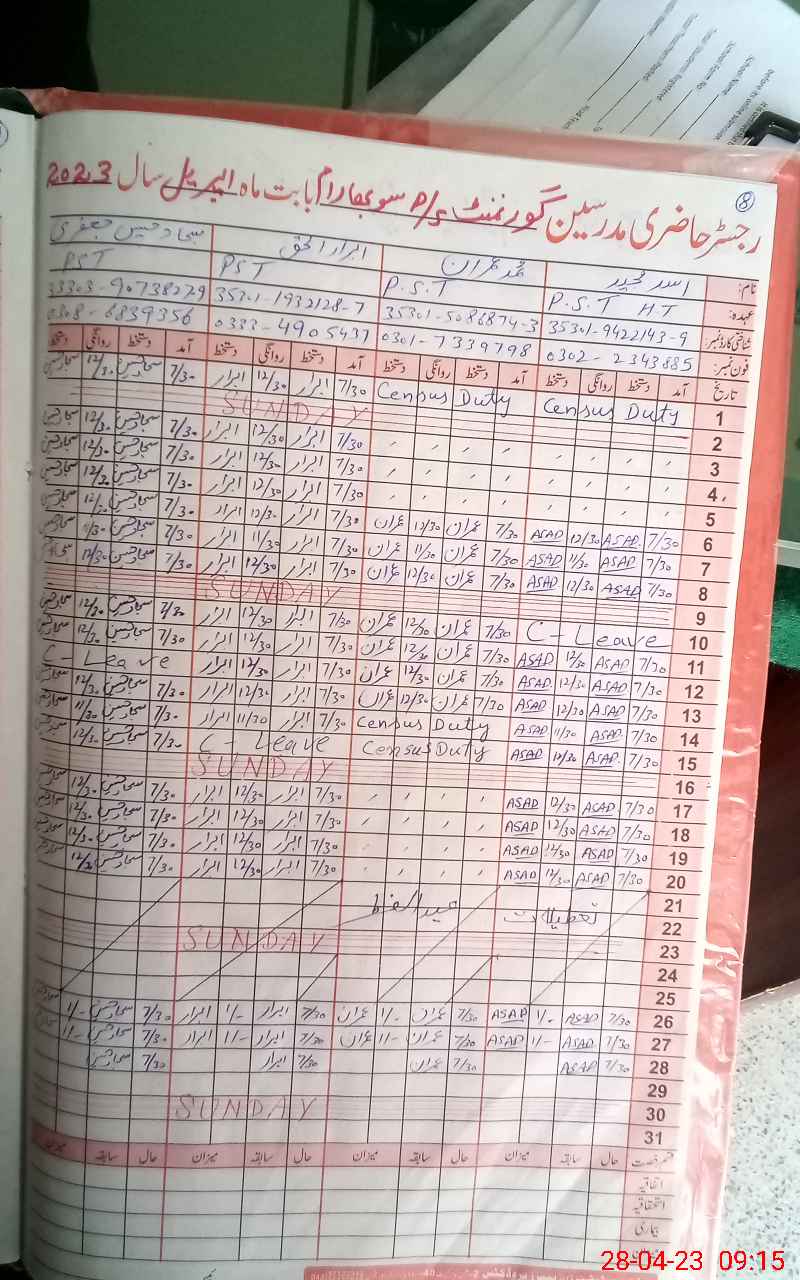 رجسٹر حاضری مدرسین گورنمنٹ P/S سوبھارام بابت ماہ اپریل سال 2023
8
نام: اسد مجید محمد عمران ابرار الحق سجاد حسین جعفری
عہدہ: P.S.T HT P.S.T PST PST
شناختی کارڈ نمبر: 35301-9422143-9 35301-5086874-3 35301-1932128-7 33303-90738279
فون نمبر: 0302-2343885 0301-7339798 0333-4905437 0308-6839356
تاریخ آمد دستخط روانگی دستخط آمد دستخط روانگی دستخط آمد دستخط روانگی دستخط آمد دستخط روانگی دستخط
1 Census Duty Census Duty 7/30 ابرار 12/30 ابرار 7/30 سجاد حسین 12/30 سجاد حسین
2 SUNDAY
3 7/30 ابرار 12/30 ابرار 7/30 سجاد حسین 12/30 سجاد حسین
4 7/30 ابرار 12/30 ابرار 7/30 سجاد حسین 12/30 سجاد حسین
5 7/30 ابرار 12/30 ابرار 7/30 سجاد حسین 12/30 سجاد حسین
6 7/30 ASAD 12/30 ASAD 7/30 عمران 12/30 عمران 7/30 ابرار 12/30 ابرار 7/30 سجاد حسین 12/30 سجاد حسین
7 7/30 ASAD 11/30 ASAD 7/30 عمران 11/30 عمران 7/30 ابرار 11/30 ابرار 7/30 سجاد حسین 11/30 سجاد حسین
8 7/30 ASAD 12/30 ASAD 7/30 عمران 12/30 عمران 7/30 ابرار 12/30 ابرار 7/30 سجاد حسین 12/30 سجاد حسین
9 SUNDAY
10 C-Leave 7/30 عمران 12/30 عمران 7/30 ابرار 12/30 ابرار 7/30 سجاد حسین 12/30 سجاد حسین
11 7/30 ASAD 12/30 ASAD 7/30 عمران 12/30 عمران 7/30 ابرار 12/30 ابرار 7/30 سجاد حسین 12/30 سجاد حسین
12 7/30 ASAD 12/30 ASAD 7/30 عمران 12/30 عمران 7/30 ابرار 12/30 ابرار C-Leave
13 7/30 ASAD 12/30 ASAD 7/30 عمران 12/30 عمران 7/30 ابرار 12/30 ابرار 7/30 سجاد حسین 12/30 سجاد حسین
14 7/30 ASAD 11/30 ASAD Census Duty 7/30 ابرار 11/30 ابرار 7/30 سجاد حسین 11/30 سجاد حسین
15 7/30 ASAD 12/30 ASAD Census Duty C-Leave 7/30 سجاد حسین 12/30 سجاد حسین
16 SUNDAY
17 7/30 ASAD 12/30 ASAD 7/30 ابرار 12/30 ابرار 7/30 سجاد حسین 12/30 سجاد حسین
18 7/30 ASAD 12/30 ASAD 7/30 ابرار 12/30 ابرار 7/30 سجاد حسین 12/30 سجاد حسین
19 7/30 ASAD 12/30 ASAD 7/30 ابرار 12/30 ابرار 7/30 سجاد حسین 12/30 سجاد حسین
20 7/30 ASAD 12/30 ASAD 7/30 ابرار 12/30 ابرار 7/30 سجاد حسین 12/30 سجاد حسین
21
22 تعطیلات عیدالفطر
23 SUNDAY
24
25
26 7/30 ASAD 1/- ASAD 7/30 عمران 1/- عمران 7/30 ابرار 1/- ابرار 7/30 سجاد حسین 1/- سجاد حسین
27 7/30 ASAD 1/- ASAD 7/30 عمران 1/- عمران 7/30 ابرار 1/- ابرار 7/30 سجاد حسین 1/- سجاد حسین
28 7/30 ASAD 7/30 عمران 7/30 ابرار 7/30 سجاد حسین
29
30 SUNDAY
31
قسم رخصت حال سابقہ میزان حال سابقہ میزان حال سابقہ میزان حال سابقہ
اتفاقیہ
استحقاقیہ
بیماری
28-04-23 09:15